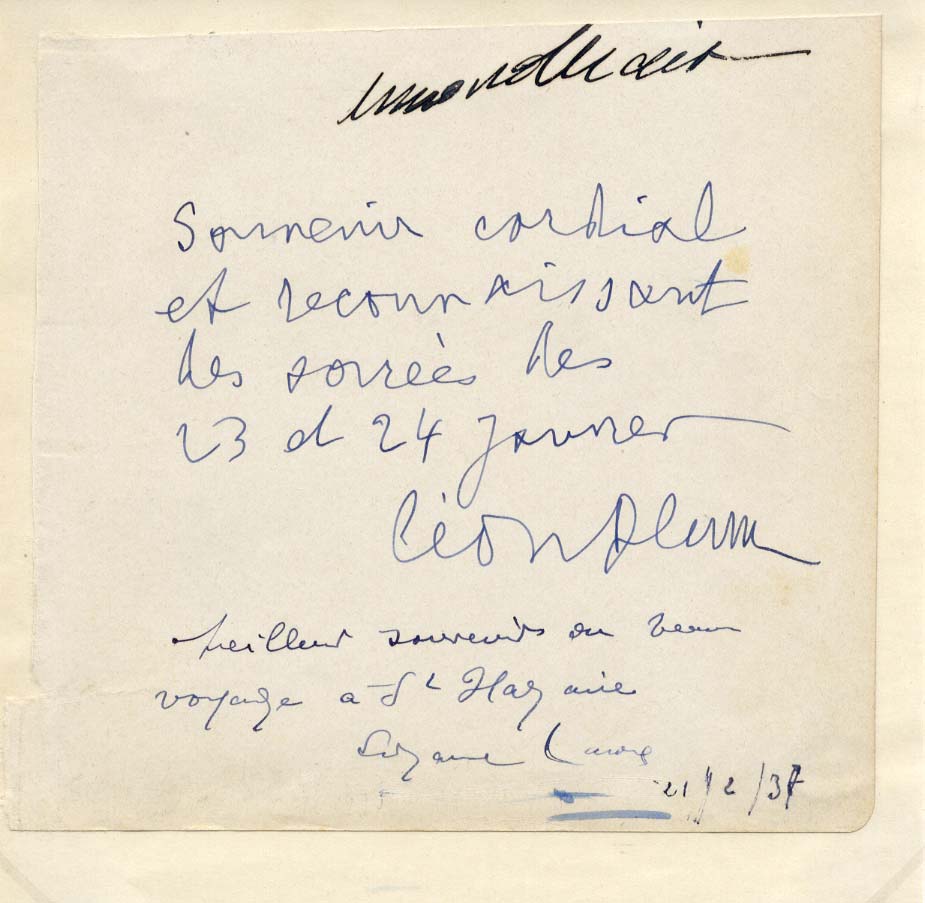 Souvenir cordial
et reconnaissant
des soirées des
23 et 24 janvier
Léon Blum
Meilleur souvenir du beau
voyage a St Nazaire
Suzanne
21/2/37